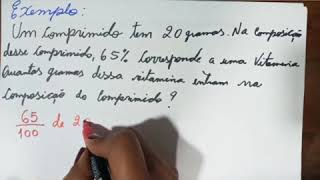 Exemplo:
Um comprimido tem 20 gramas. Na composição
desse comprimido, 65% corresponde a uma Vitamina
Quantas gramas dessa vitamina entram na
composição do comprimido?
65/100 de 2